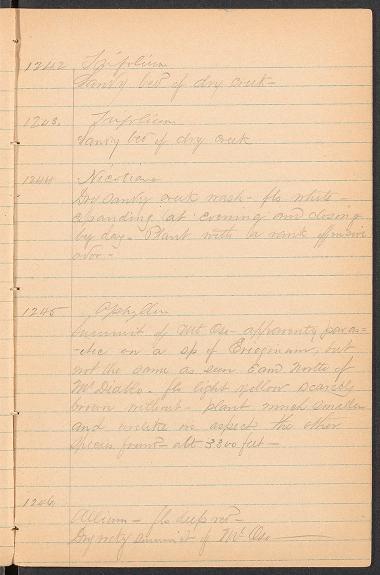 1242 Trifolium
Sandy bed of dry creek -
1243. Trifolium
Sandy bed of dry creek
1244 Nicotiana
Dry sandy creek wash - fls white -
expanding at evening and closing
by day. Plant with a rank offensive
odor. -
1245 Aphyllon
Summit of Mt Oso apparently paras=
=itic on a sp of Eriogonum, but
not the same as seen 6 am. North of
Mt Diablo. fls light yellow scarcely
brown without - plant much smaller
and unlike in aspect the other
species from - alt 3300 feet -
1246
Allium - fls deep red -
Dry rocky summit of Mt. Oso